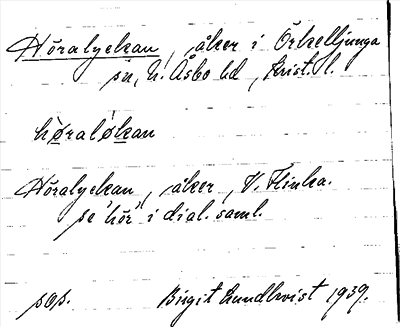 Höralyckan, åker i Örkelljunga
sn, N. Åsbo hd, Krist. l.
hø̀ralókan
Höralyckan, åker, V. Flinka.
se "hör" i dial. saml.
pop. Birgit Lundkvist 1939.